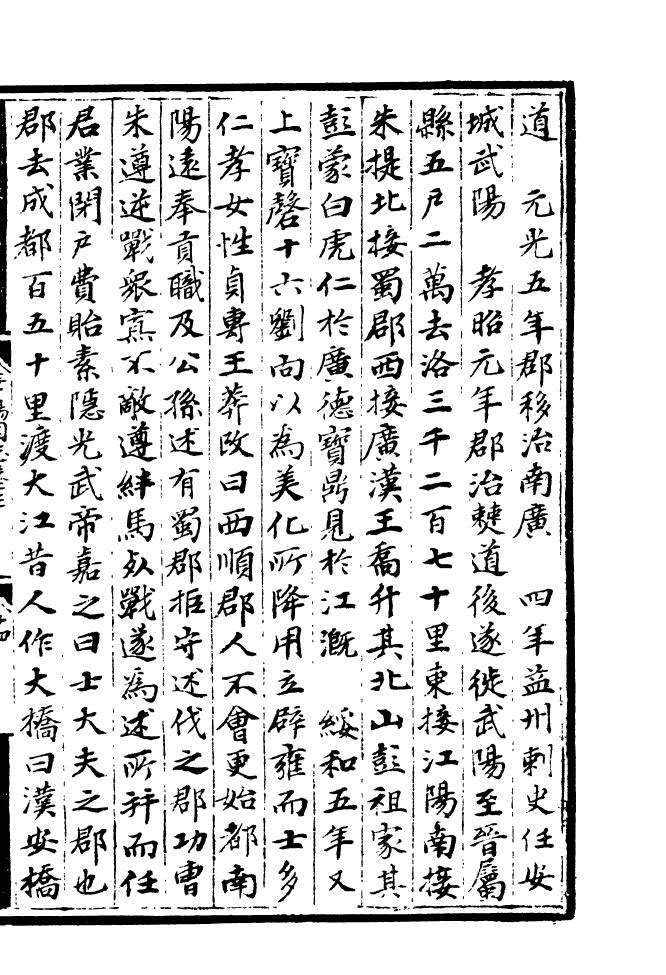 道　元光五年郡移治南廣　四年益州刺史任安
城武陽　孝昭元年郡治僰道後遂徙武陽至晉屬
縣五戶二萬去洛三千二百七十里東接江陽南接
朱提北接蜀郡西接廣漢王喬升其北山彭祖家其
彭蒙白虎仁於廣德寶鼎見於江溉　綏和五年又
上寶磬十六劉向以為美化所降用立辟雍而士多
仁孝女性貞專王莽改曰西順郡人不會更始都南
陽遠奉貢職及公孫述有蜀郡拒守述伐之郡功曹
朱遵逆戰衆寡不敵遵絆馬死戰遂為述所并而任
君業閉戶費貽素隱光武帝嘉之曰士大夫之郡也
郡去成都百五十里渡大江昔人作大橋曰漢安橋